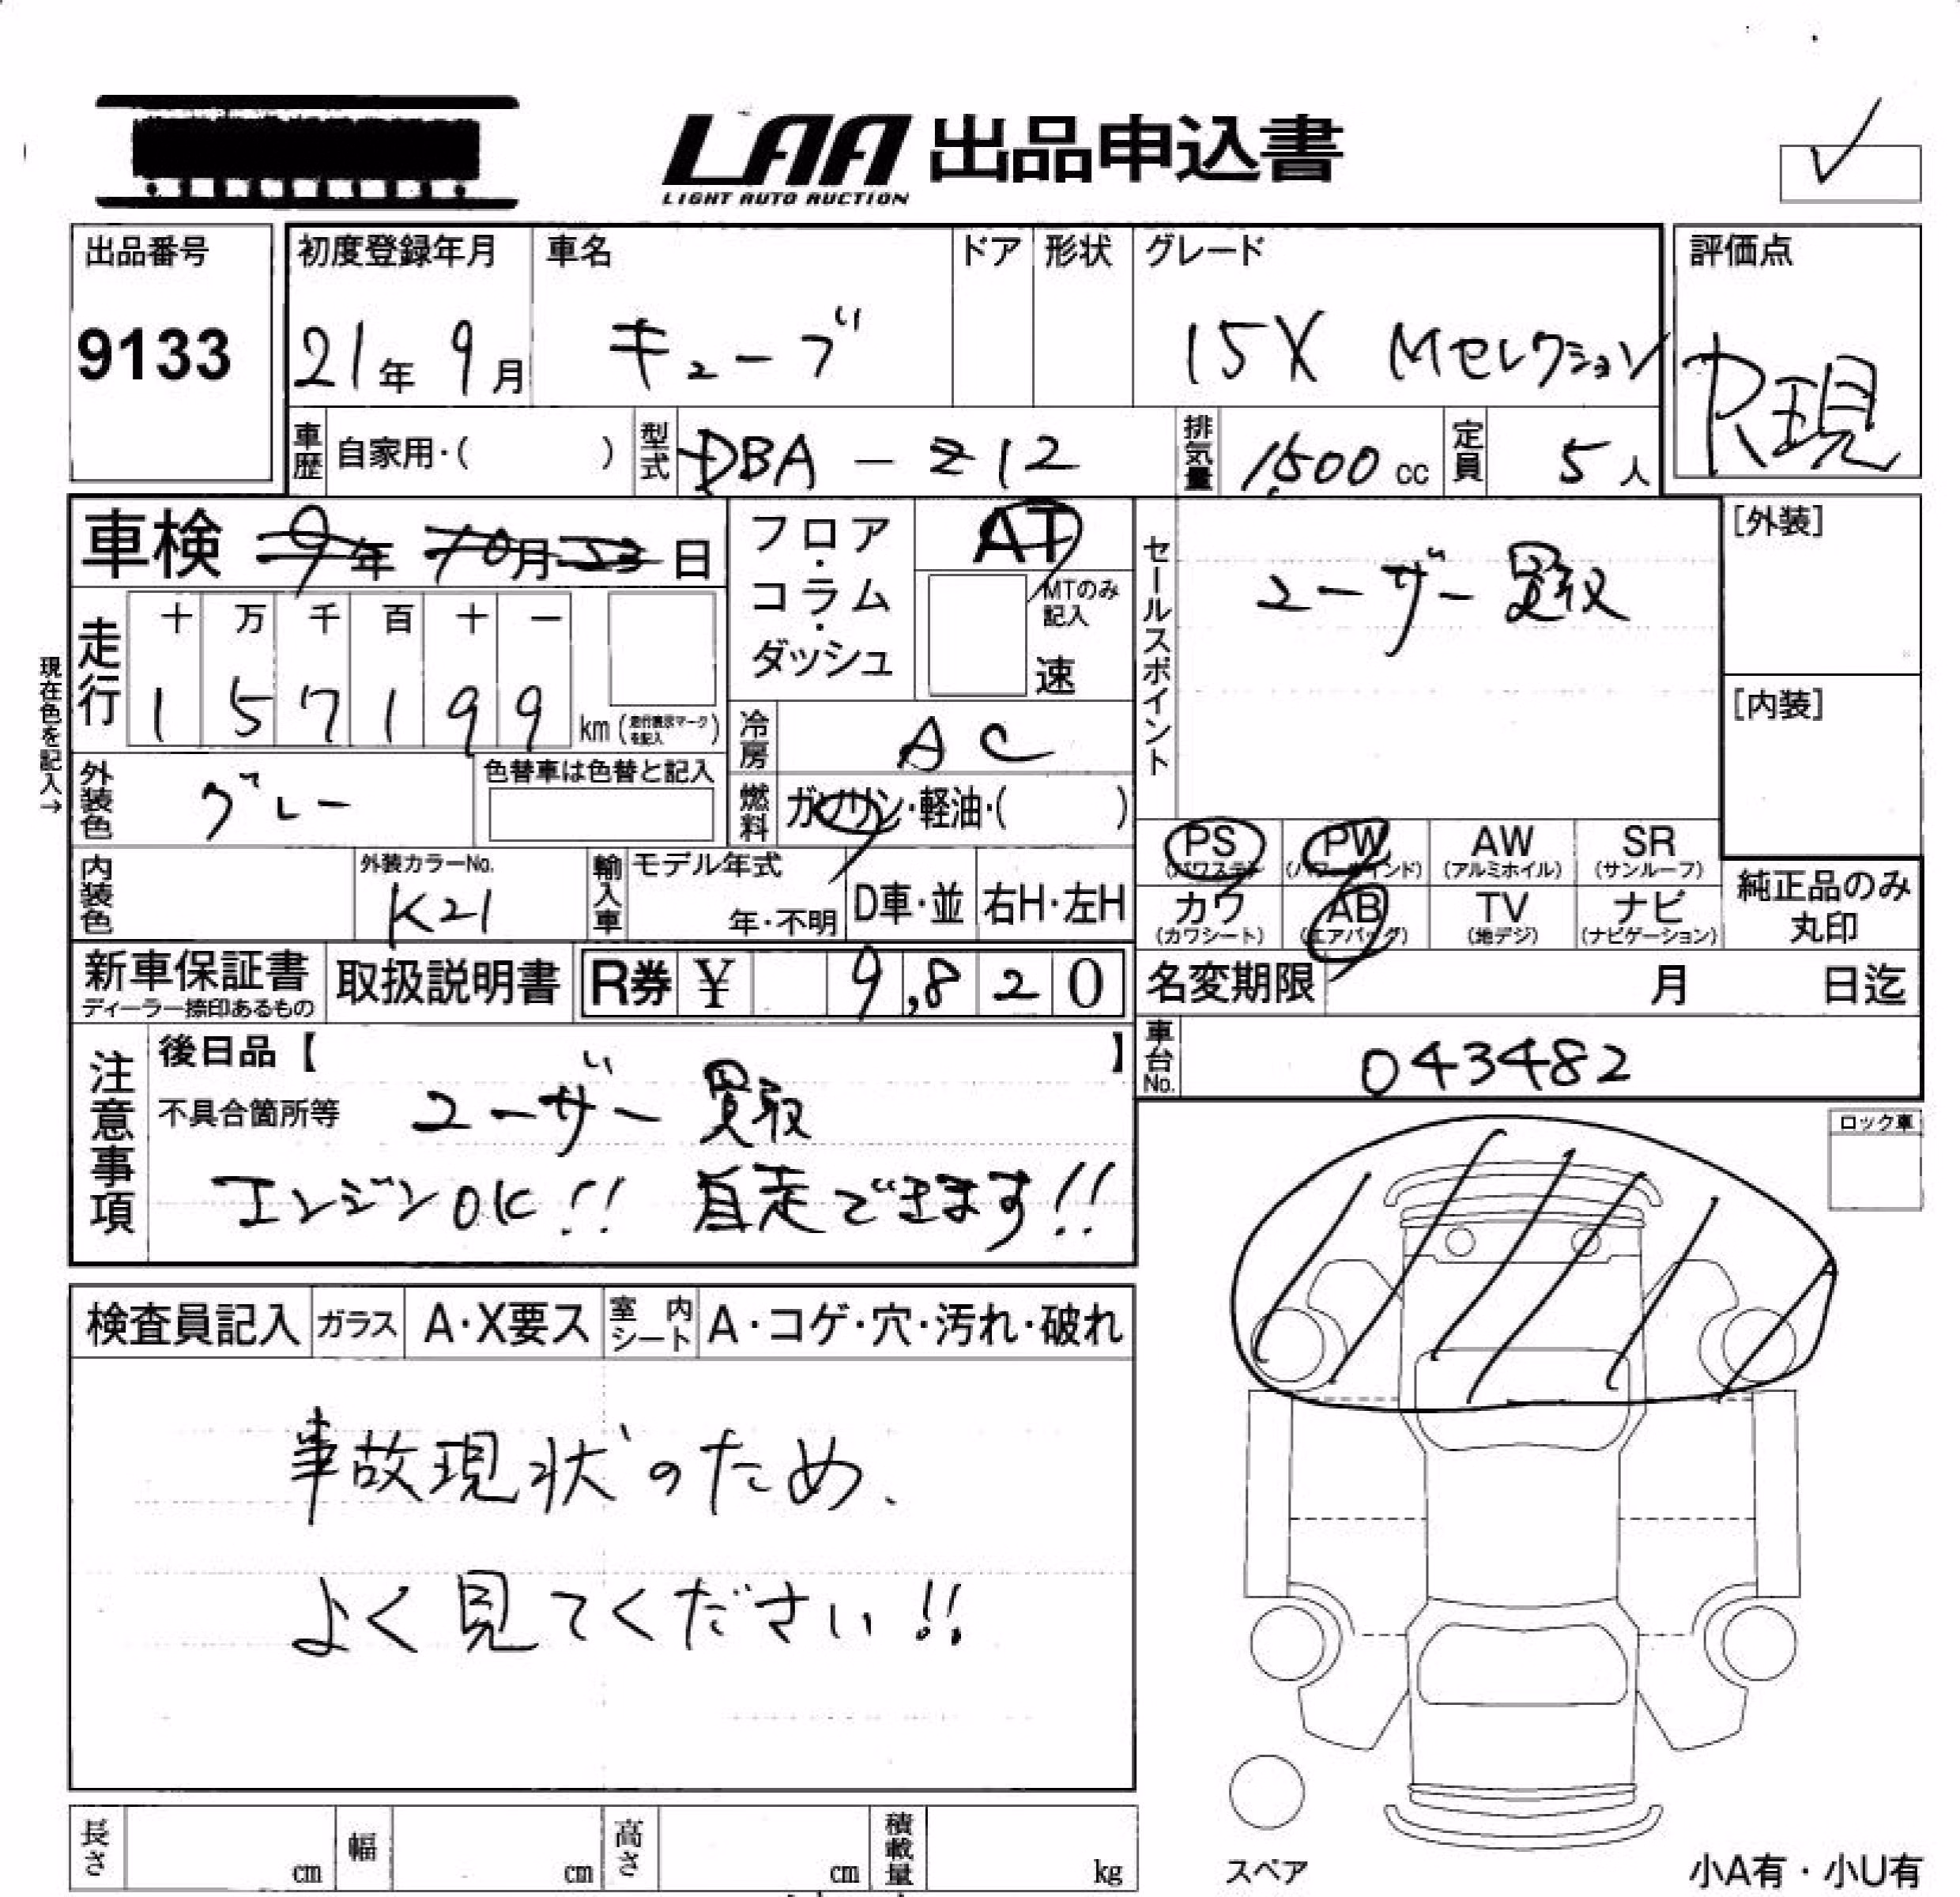 LAA 出品申込書
LIGHT AUTO AUCTION
出品番号
9133
初度登録年月
21年 9月
車名
キューブ
ドア
形状
グレード
15X Mセレクション
評価点
R現
車歴 自家用・( )
型式 DBA-Z12
排気量 1,500 cc
定員 5人
車検 9年 10月 23日
フロア・コラム・ダッシュ
AT
MTのみ記入
速
現在色を記入→
走行
十 万 千 百 十 一
1 5 7 1 9 9
km (走行表示マークを記入)
冷房 AC
外装色 グレー
色替車は色替と記入
燃料 ガソリン・軽油・( )
内装色
外装カラーNo.
K21
輸入車
モデル年式
年・不明
D車・並
右H・左H
新車保証書
ディーラー捺印あるもの
取扱説明書
R券 ¥ 9,820
セールスポイント
ユーザー買取
[外装]
[内装]
PS (パワステ)
PW (パワーウインド)
AW (アルミホイル)
SR (サンルーフ)
カワ (カワシート)
AB (エアバッグ)
TV (地デジ)
ナビ (ナビゲーション)
純正品のみ
丸印
名変期限 月 日迄
車台No. 043482
注意事項
後日品【 】
不具合箇所等 ユーザー買取
エンジンOK!! 自走できます!!
ロック車
検査員記入
ガラス A・X要ス
室内シート A・コゲ・穴・汚れ・破れ
事故現状のため、
よく見てください!!
長さ cm
幅 cm
高さ cm
積載量 kg
スペア
小A有・小U有